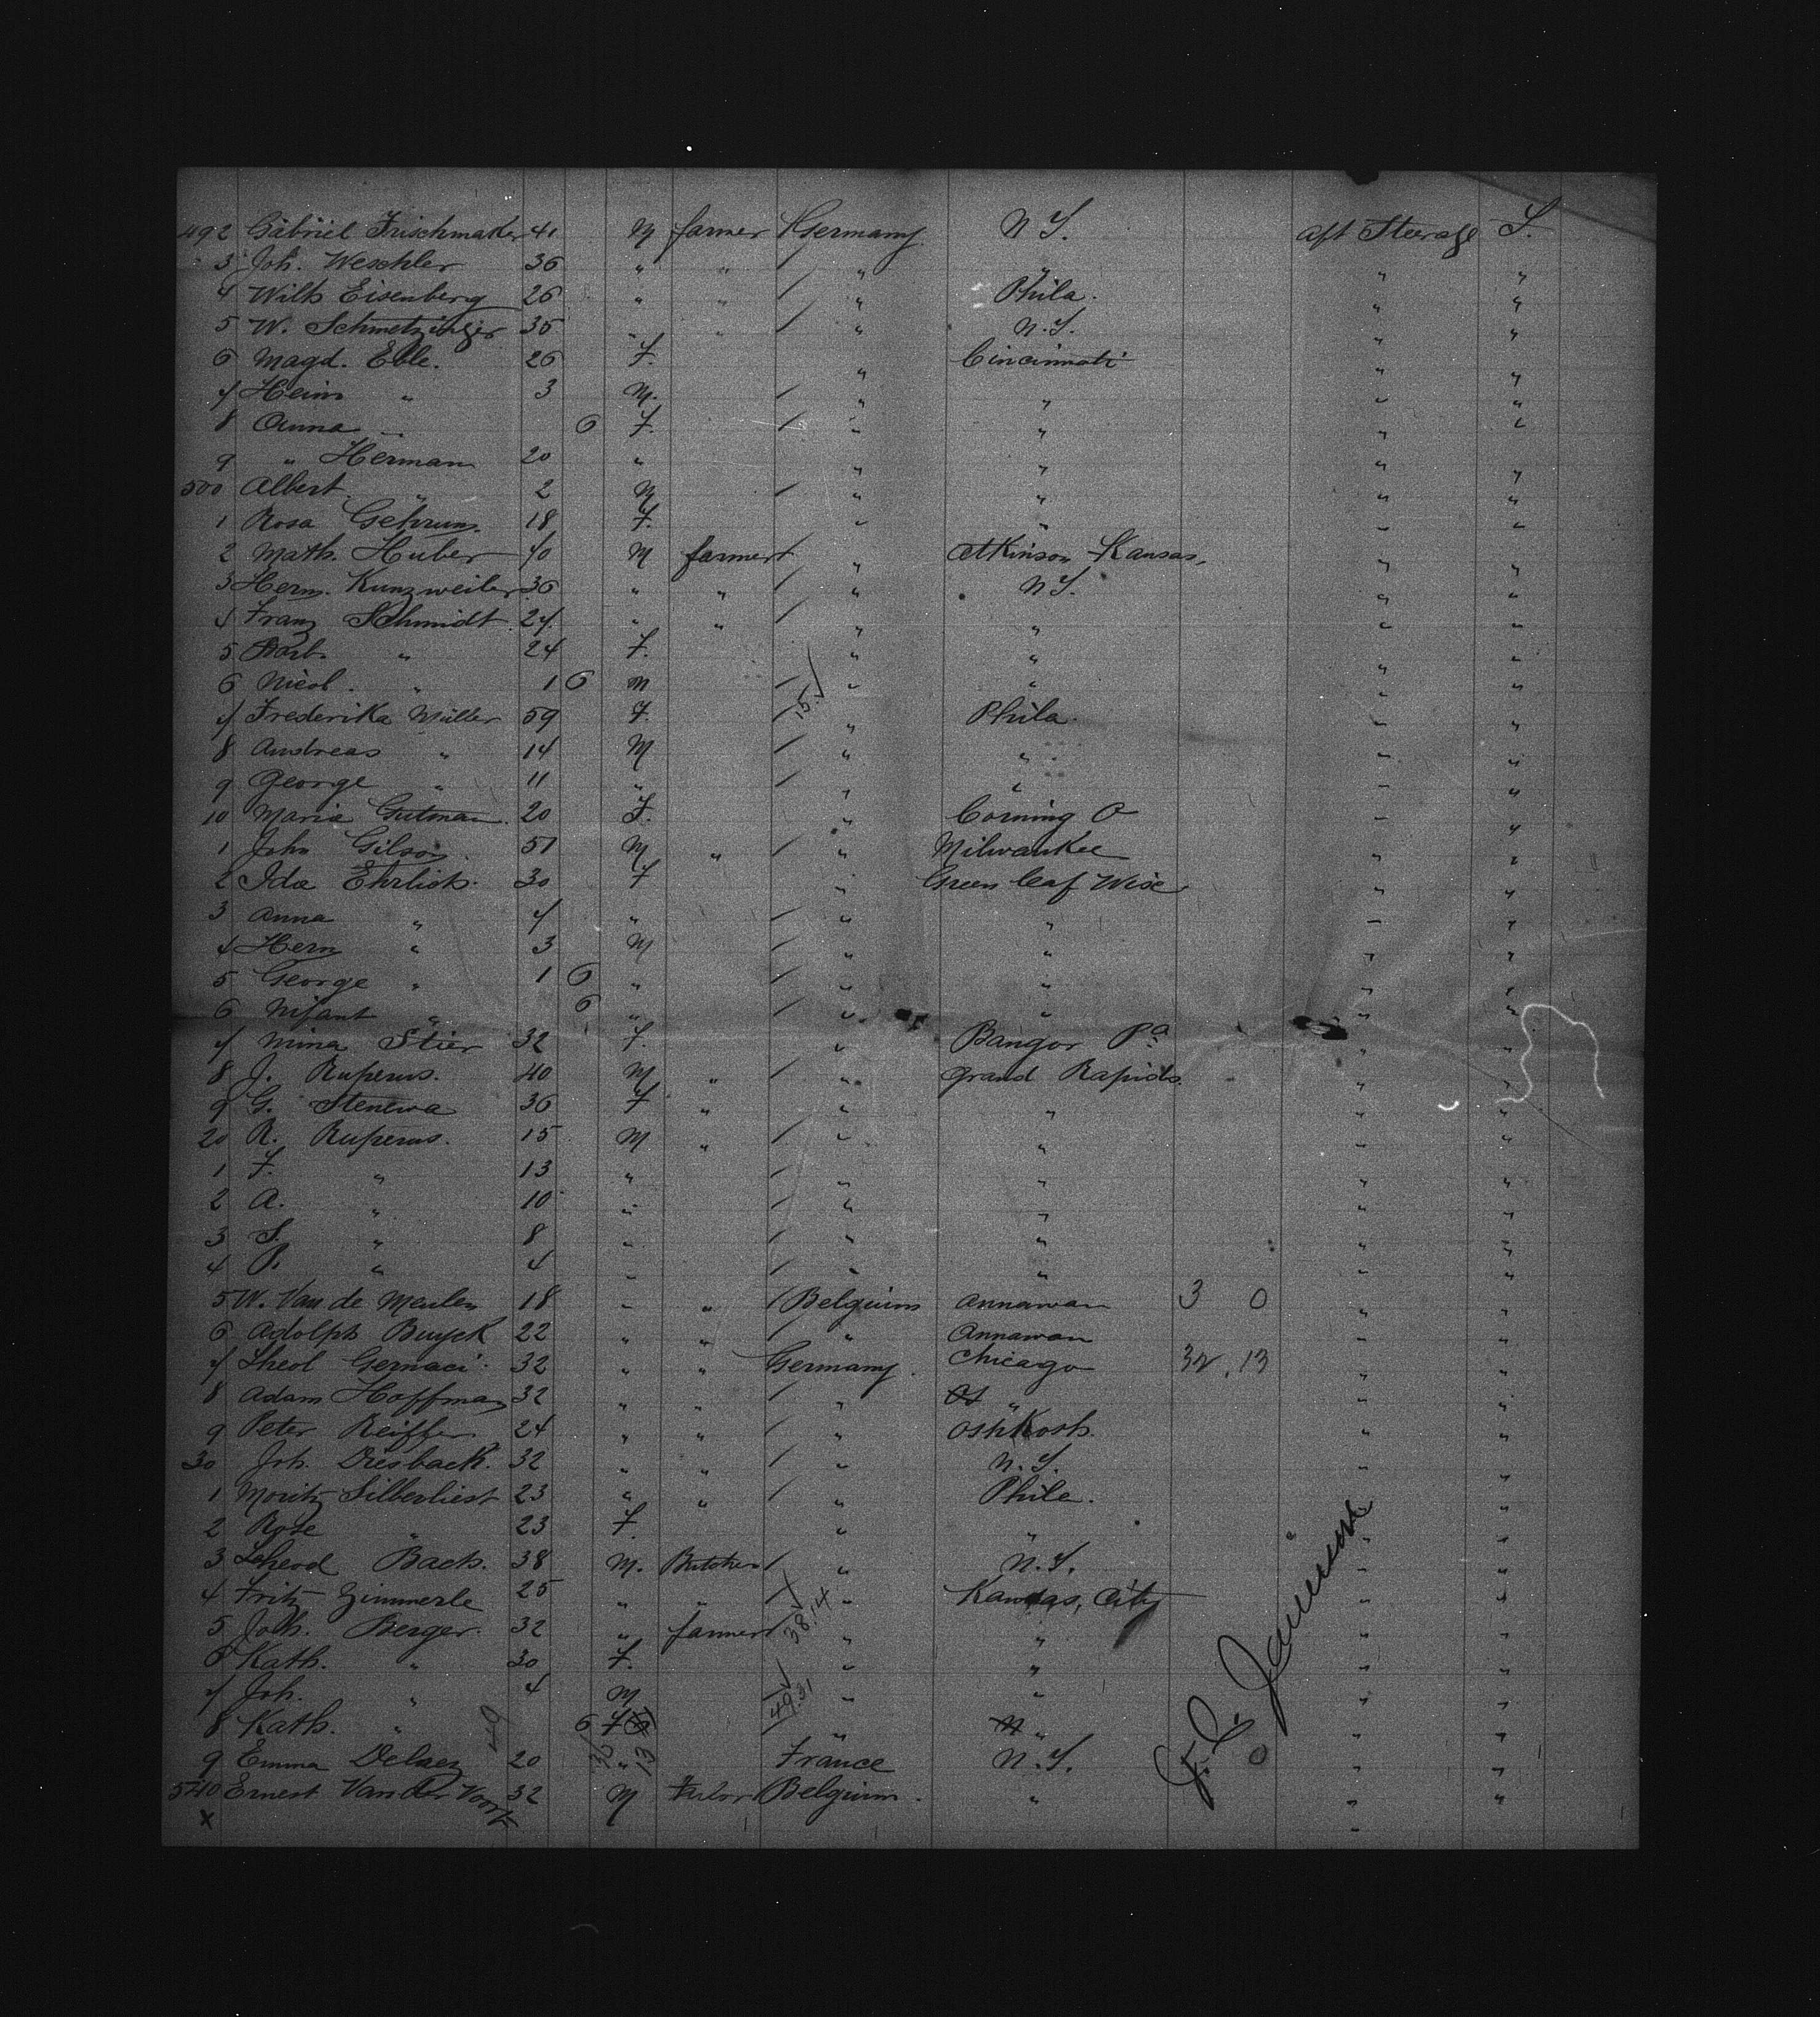 492 Gabriel Frischmaker 41 M farmer Germany N Y. Aft Steerage S.
3 Joh. Weschler 36 " " / " " " "
4 Wilh Eisenberg 26 " " / " Phila. " "
5 W. Schmetzinger 35 " " / " N.Y. " "
6 Magd. Eble. 26 F. " Cincinnati " "
7 Hein " 3 M. / " " " "
8 Anna " 6 F. / " " " "
9 " Herman 20 " " " " "
500 Albert " 2 M / " " " "
1 Rosa 18 F. " " " "
2 Math. Huber 40 M farmer / " Atkinson Kansas, " "
3 Herm. Kunzweiler 36 " " / " N Y. " "
4 Franz Schmidt 24 " " / " " " "
5 Barb. " 24 F. " " " "
6 Nicol. " 1 6 M / " " " "
15 ✓
7 Frederika Müller 59 F. / " Phila. " "
8 Andreas " 14 M / " " " "
9 George " 11 " / " " " "
10 Maria Gutman 20 F. " Corning O " "
1 John Gilson 51 M " / " Milwaukee " "
2 Ida Ehrlich 30 F " Green leaf Wisc. " "
3 Anna " 7 " / " " " "
4 Herm " 3 M / " " " "
5 George " 1 6 " / " " " "
6 Infant " 6 " / " " " "
7 Mina Stier 32 F. " Bangor Pa " "
8 J. Ruperus. 40 M " / " Grand Rapids. " "
9 G. Stenewa 36 F " " " " "
20 R. Ruperus. 15 M " / " " " "
1 F. " 13 " / " " " "
2 A. " 10 " / " " " "
3 S. " 8 " / " " " "
4 P. " 4 " / " " " "
5 W. Van de Meulen 18 " " / Belgium Annawan 3 0 " "
6 Adolph Buyck 22 " " / " Annawan " "
7 Gernaci 32 " " Germany. Chicago 32, 13 " "
8 Adam Hoffman 32 " " / " " " "
9 Peter Reiffer 24 " " / " Oshkosh. " "
30 Joh. Diesback. 32 " " / " N.Y. " "
1 Moritz Silberliest 23 " " / " Phile. " "
2 Rose " 23 F. " " " "
3 Bach. 38 M. Butcher / " N.Y. " "
4 Fritz Zimmerle 25 " " / " Kansas, City " "
38.14 ✓
5 Joh. Berger. 32 " farmer / " " " "
6 Kath. " 30 F. " " " "
7 Joh. " 4 M / " " " "
49.31 ✓
8 Kath. " 6 F " " " "
9 Emma Delaey 20 " France N.Y. " "
49 36 13
540 Ernest Van der Voort 32 M Belgium. " " "
x